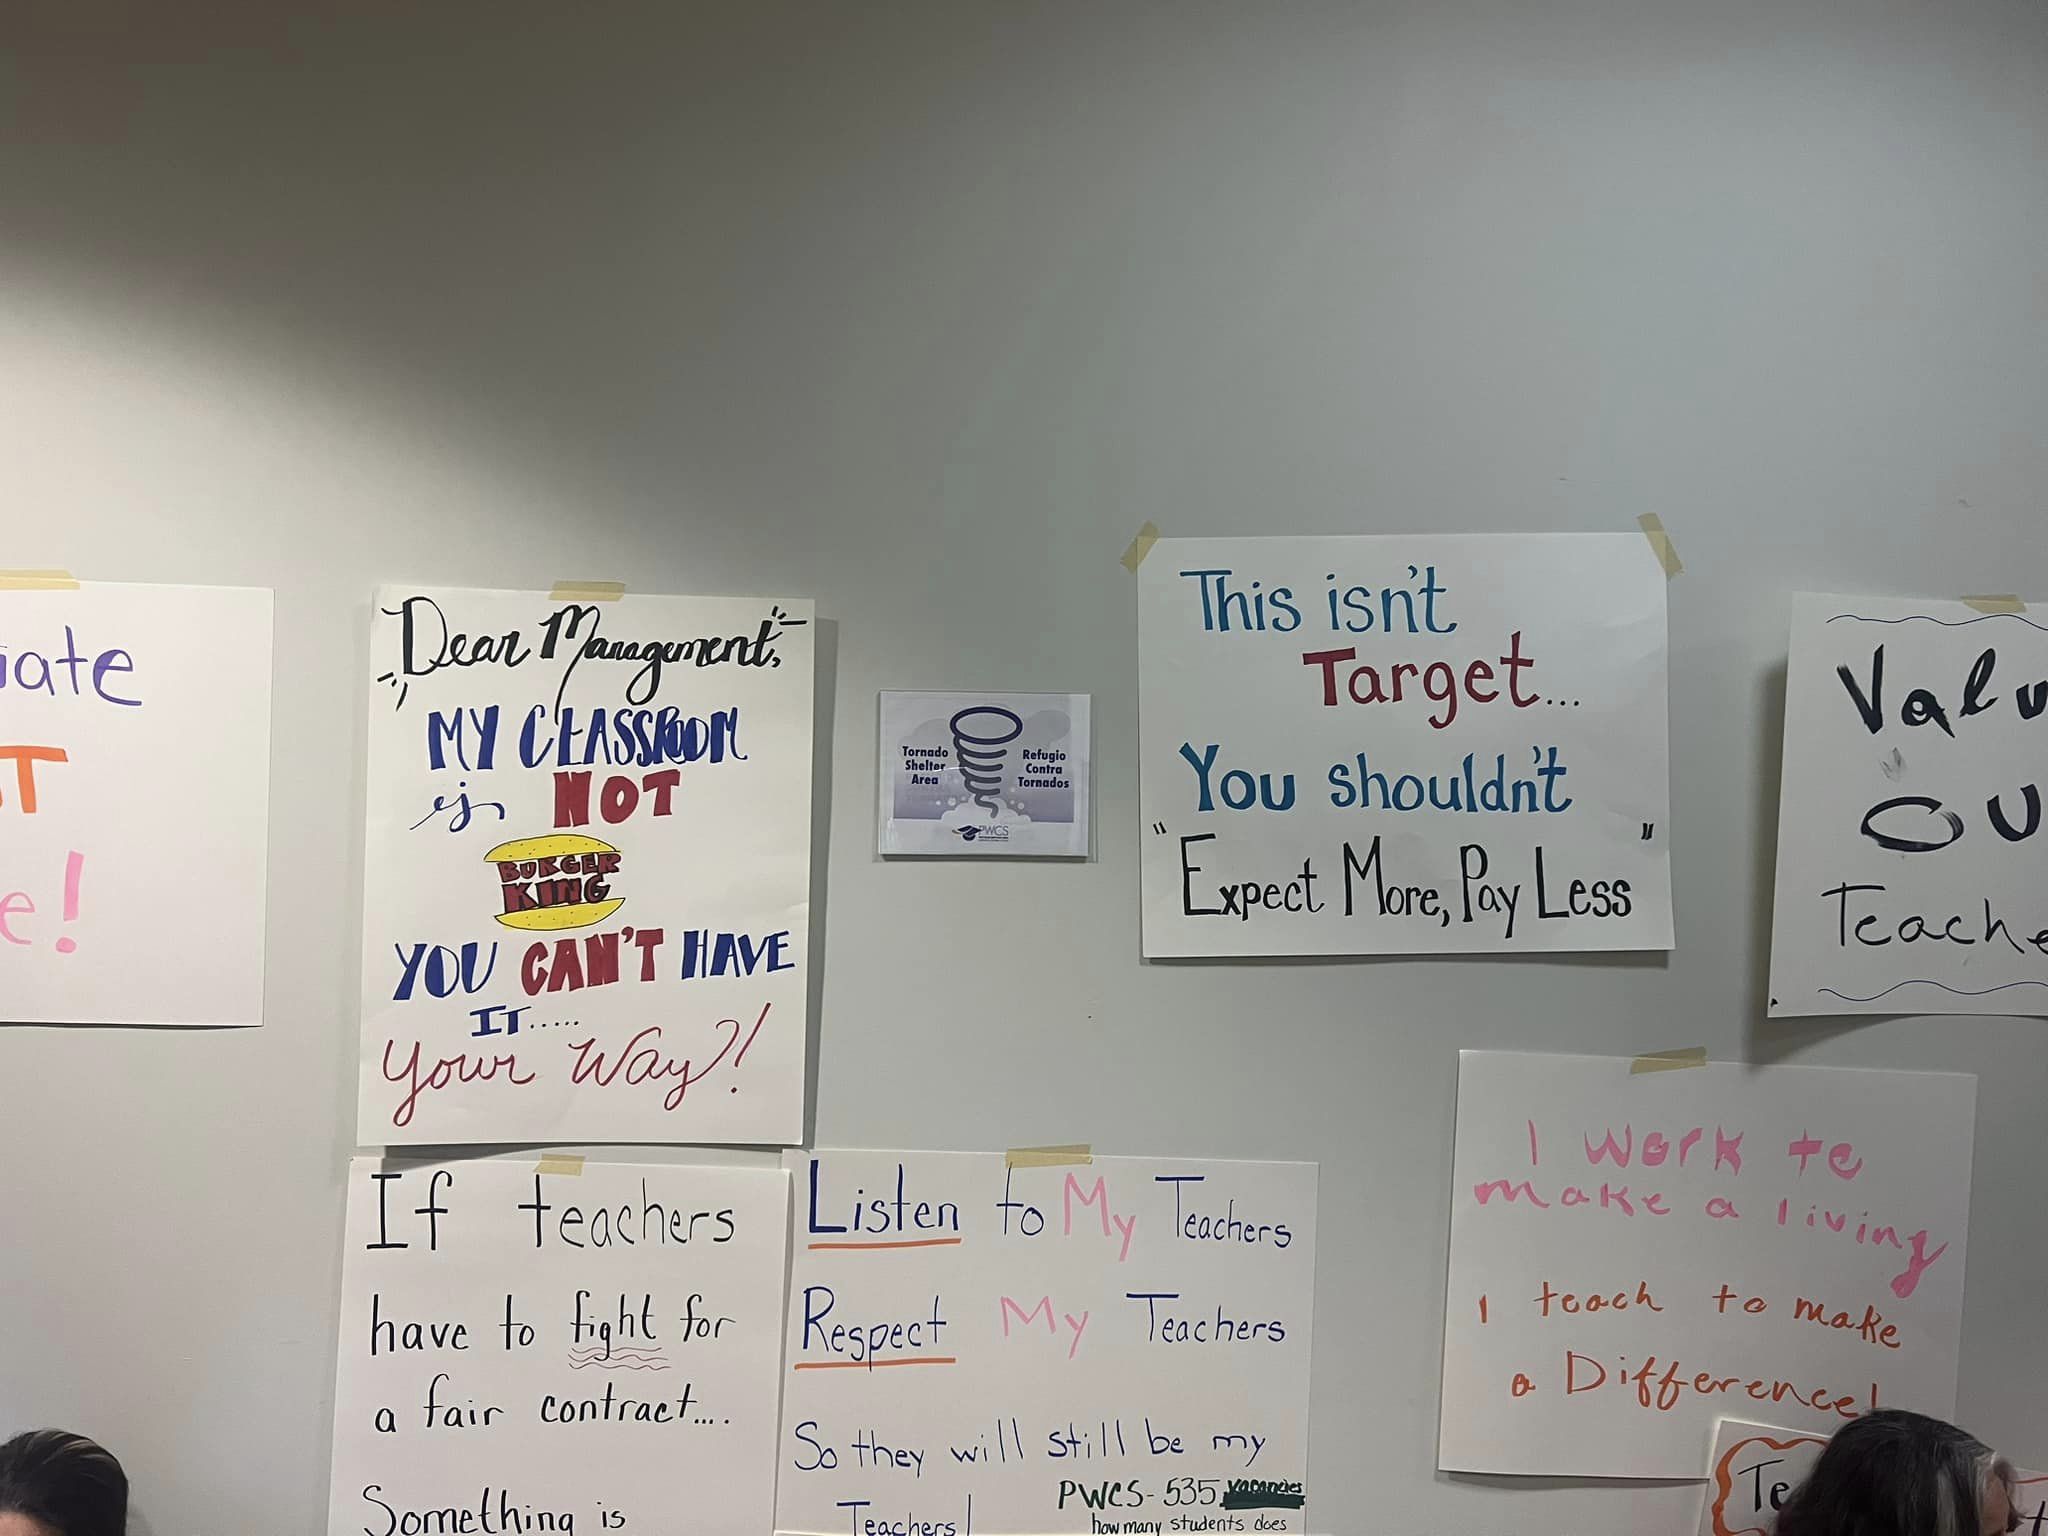 iate
T
e!
Dear Management,
MY CLASSROOM
is NOT
BURGER
KING
YOU CAN'T HAVE
IT.....
Your Way?!
Tornado
Shelter
Area
Refugio
Contra
Tornados
PWCS
This isn't
Target...
You shouldn't
"Expect More, Pay Less"
Valu
OU
Teache
If teachers
have to fight for
a fair contract....
Something is
Listen to My Teachers
Respect My Teachers
So they will still be my
Teachers!
PWCS - 535 vacancies
how many students does
I work to
make a living
I teach to make
a Difference!
Te